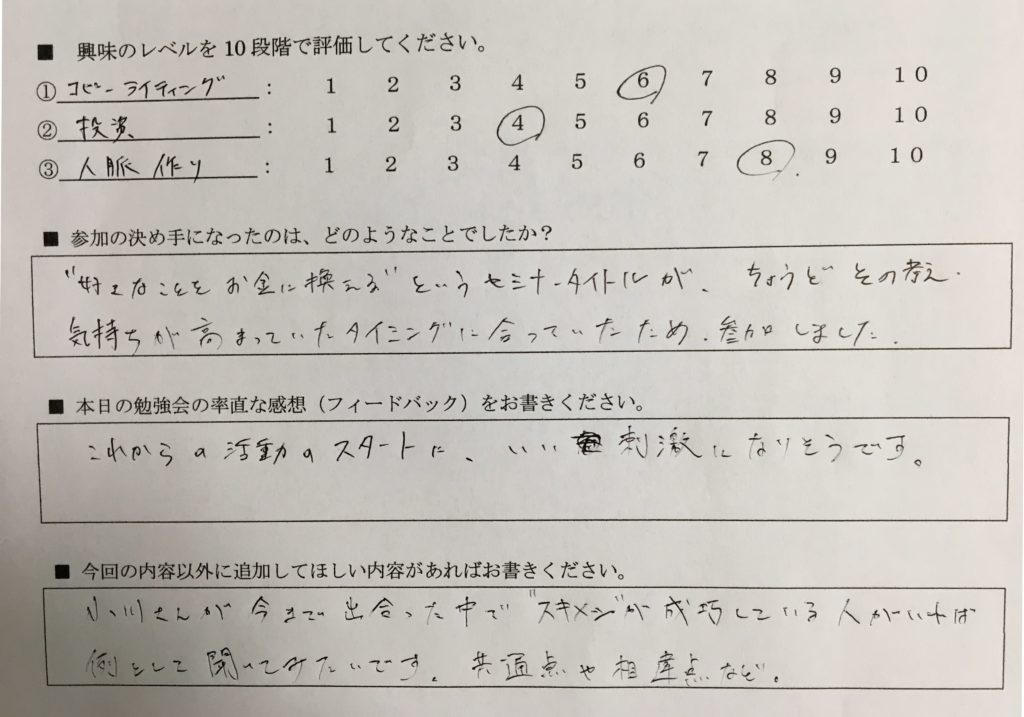 ■ 興味のレベルを10段階で評価してください。
①コピーライティング : 1 2 3 4 5 6 7 8 9 10
②投資 : 1 2 3 4 5 6 7 8 9 10
③人脈作り : 1 2 3 4 5 6 7 8 9 10
■ 参加の決め手になったのは、どのようなことでしたか？
"好きなことをお金に換える"というセミナータイトルが、ちょうどその考え・
気持ちが高まっていたタイミングに合っていたため、参加しました。
■ 本日の勉強会の率直な感想（フィードバック）をお書きください。
これからの活動のスタートに、いい刺激になりそうです。
■ 今回の内容以外に追加してほしい内容があればお書きください。
小川さんが今まで出合った中で"スキメシ"が成巧している人がいれば
例として聞いてみたいです。共通点や相違点など。